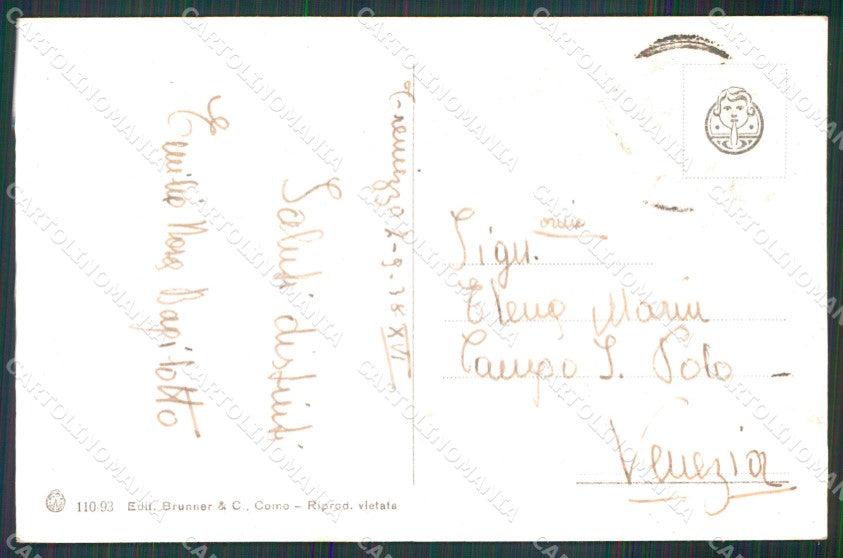 Tremezzo 7-9-38 XVI
Saluti distinti
Emilio Nora Bagilotto
Sign.orina
Elena Marin
Campo S. Polo
Venezia
110-93 Ediz. Brunner & C., Como - Riprod. vietata
CARTOLINOMANIA